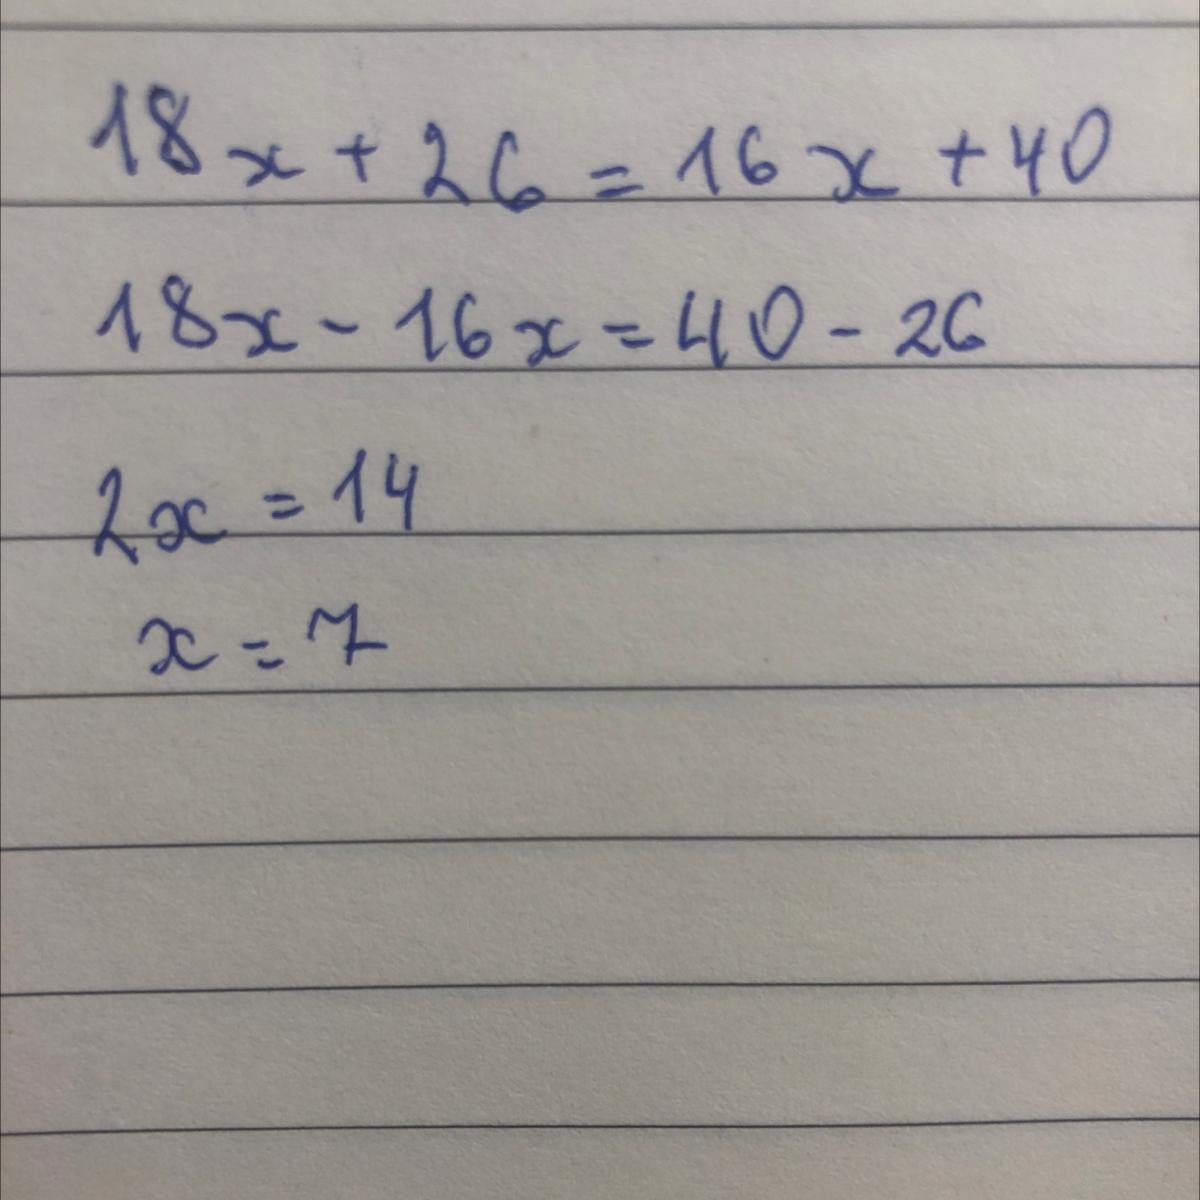 18x + 26 = 16x + 40
18x - 16x = 40 - 26
2x = 14
x = 7